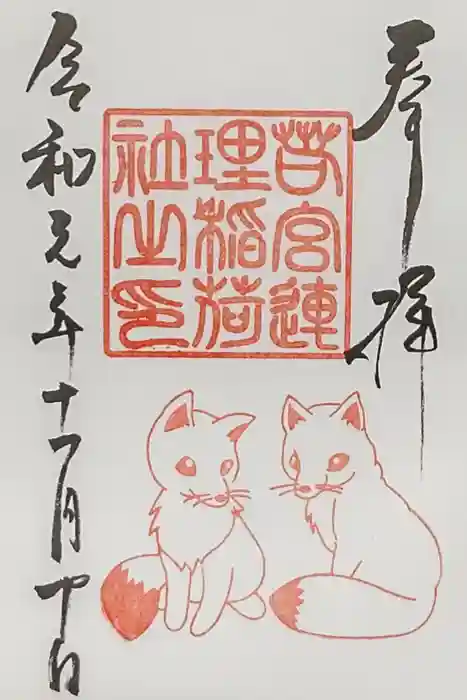 奉拝
若宮連
理稲荷
社之印
令和元年十一月廿日